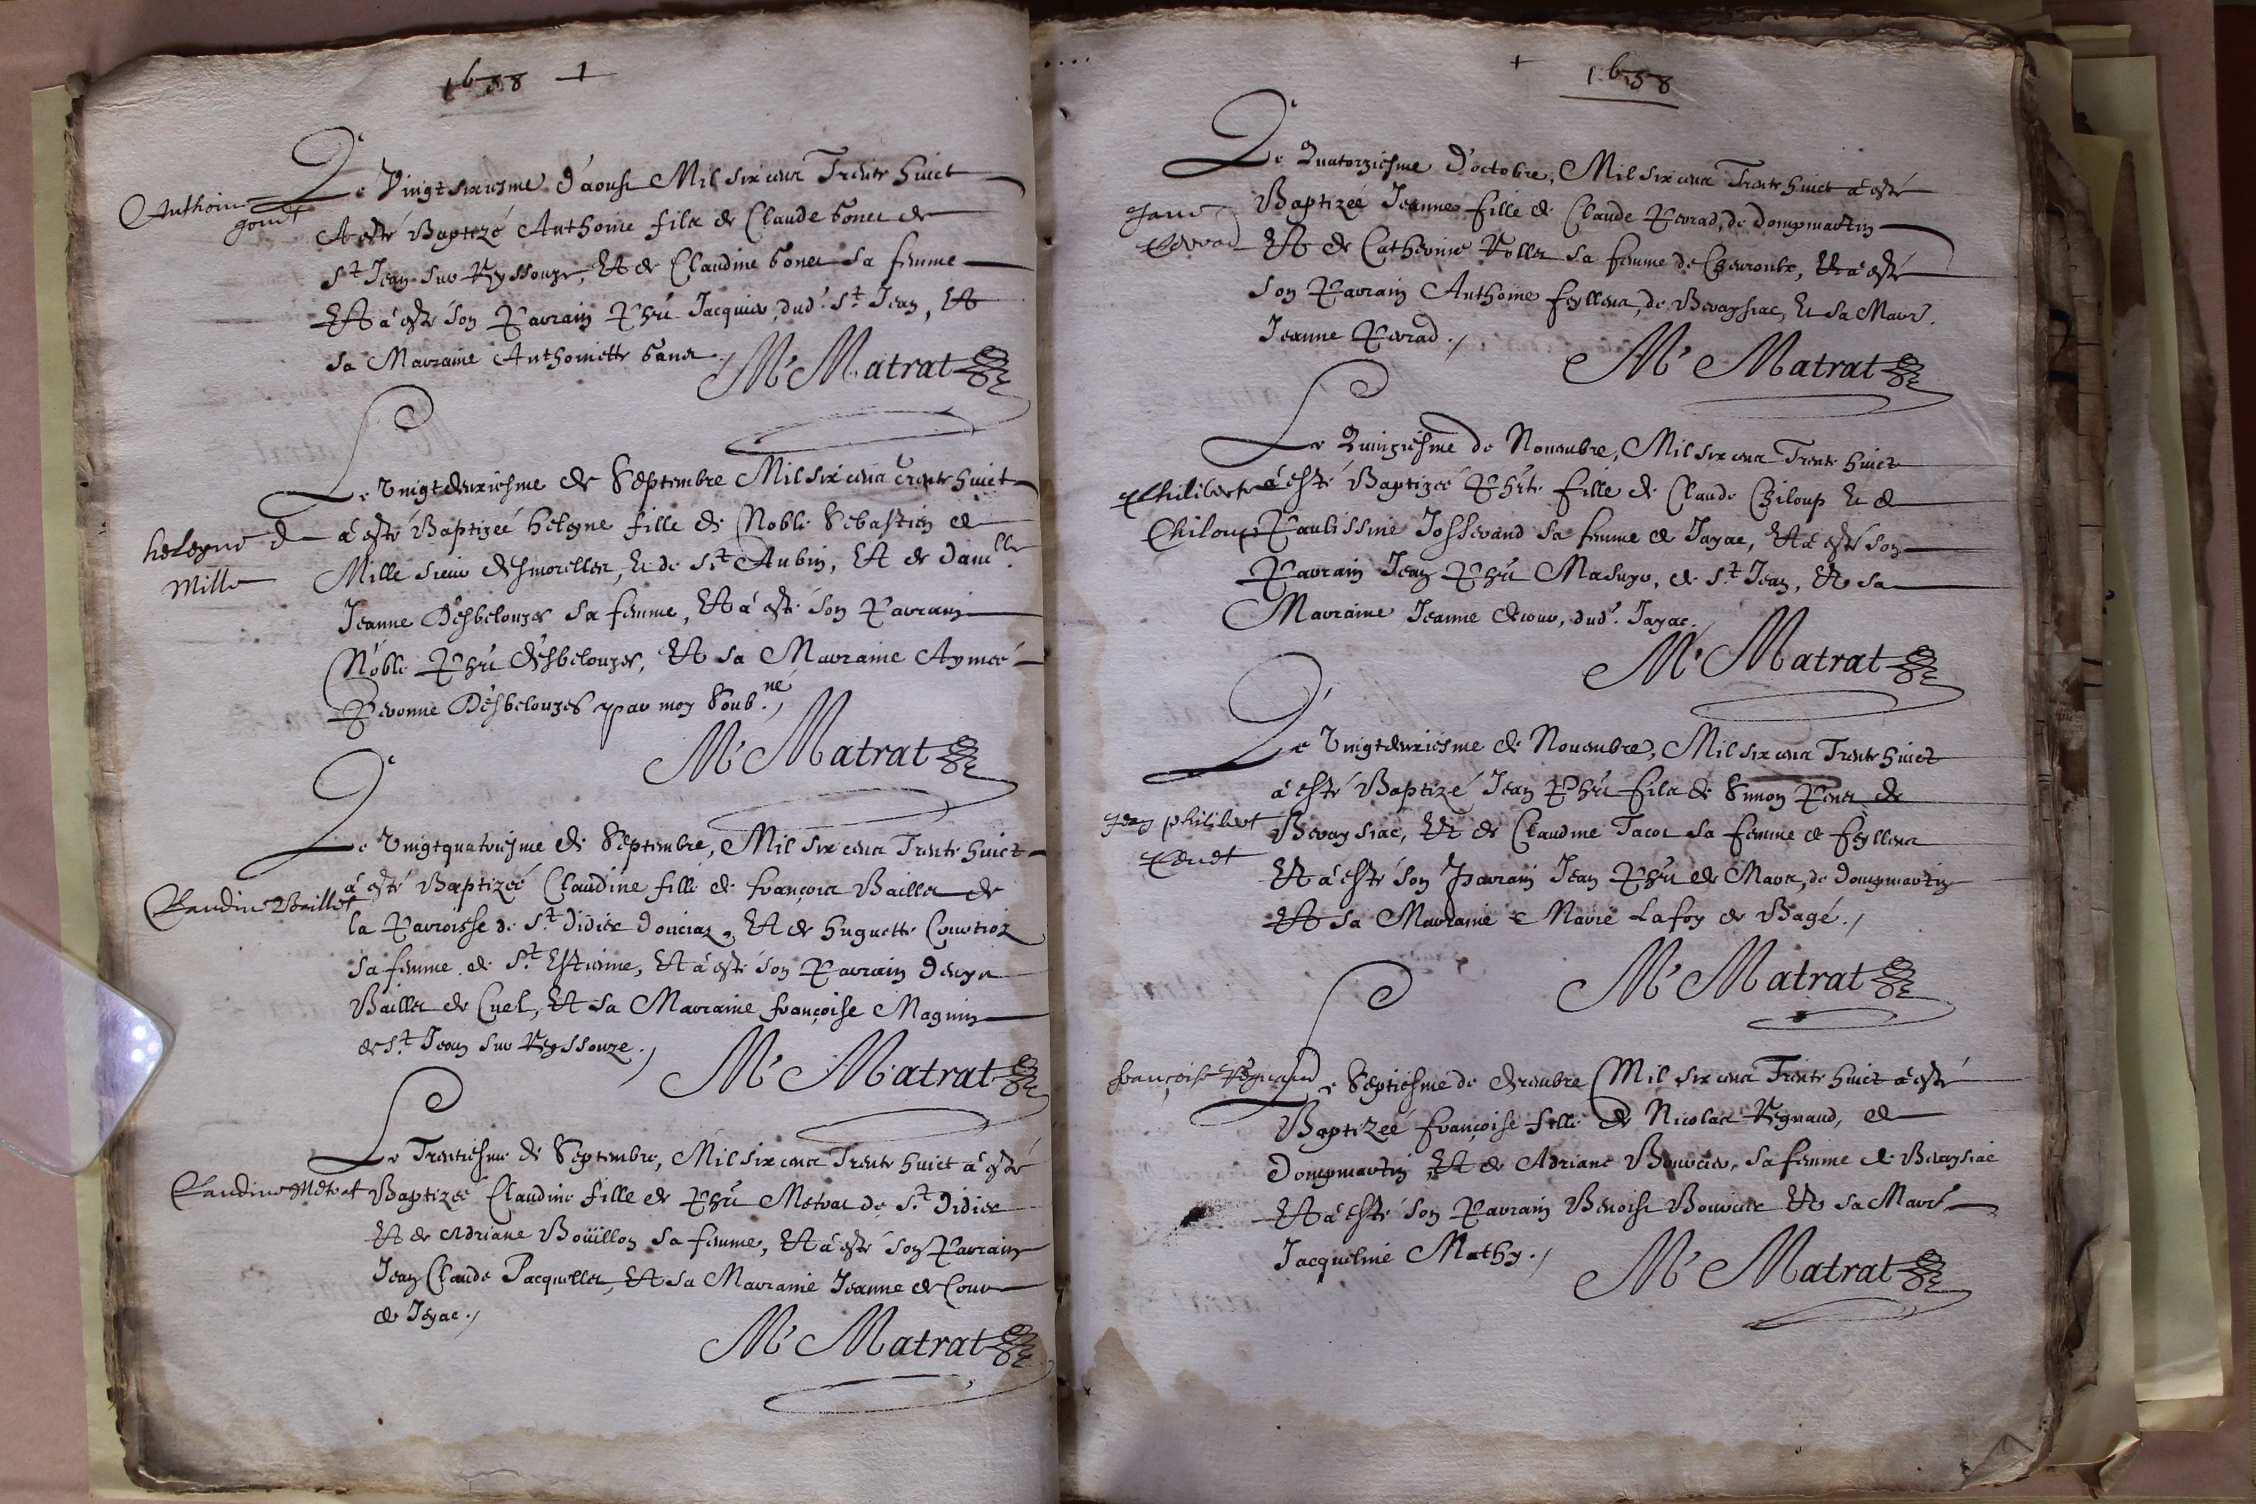 1638
Anthoine
Gonet
Le Vingt sixiesme d'aoust Mil six cens Trente huict
A esté Baptizé Anthoine filz de Claude Gonet de
St Jean sur Reyssouze, Et de Claudine Gonet sa femme
Et a esté son Parrain Phű Jacquier, dud. St Jean, Et
sa Marraine Anthoinette Gonet ./
M' Matrat
heleyne de
Mille
Le Vingtdeuxiesme de Septembre Mil six cens trente huict
à esté Baptizeé heleyne fille de Noble Sebastien de
Mille sieur desmorelles, et de St Aubin, Et de damlle
Jeanne Desbelouzes sa femme, Et a esté son Parrain
Noble Phű desbelouzes, Et sa Marraine Aymeé
Peronne Desbelouzes par moy Soub.né /
M' Matrat
Claudine Baillet
Le Vingtquatriesme de Septembre, Mil six cens Trente huict
à esté Baptizeé Claudine fille de françois Baillet de
la Parroisse de St didier donciaz, Et de huguette Courtioz
sa femme de St Estienne, Et à esté son Parrain denys
Baillet de Cuel, Et sa Marraine françoise Magnin
de St Jean sur Reyssouze ./
M' Matrat
Claudine Metrat
Le Trentiesme de Septembre, Mil six cens Trente huict à esté
Baptizeé Claudine fille de Phű Metrat de St didier
Et de Adriane Boüillon sa femme, Et à esté son Parrain
Jean Claude Pacquellet, Et sa Marraine Jeanne de Cour
de Jayac ./
M' Matrat
1638
Jane
Perrad
Le Quatorziesme d'octobre, Mil six cens Trente huict à esté
Baptizeé Jeanne fille de Claude Perrad, de dompmartin
Et de Catherine Rollet sa femme de Chevroulx, Et à esté
son Parrain Anthoine feyllens, de Bevaysiac, et sa Marr.
Jeanne Perrad ./
M' Matrat
Philiberte
Chiloup
Le Quinziesme de Nouembre, Mil six cens Trente huict
à esté Baptizeé Phũte fille de Claude Chiloup et de
Paulissine Josserand sa femme de Jayac, Et à esté son
Parrain Jean Phű Masuyr, de St Jean, Et sa
Marraine Jeanne decour, dud. Jayac.
M' Matrat
Jean philibert
Penet
Le Vingtdeuxiesme de Nouembre, Mil six cens Trente huict
à esté Baptizé Jean Phű filz de Simon Penet de
Bevaysiac, Et de Claudine Tacot sa femme de feyllens
Et à esté son Parrain Jean Phű de Mars, de dompmartin
Et sa Marraine Marie Lafoy de Bagé ./
M' Matrat
françoise Regnaud
Le Septiesme de decembre Mil six cens Trente huict à esté
Baptizeé françoise fille de Nicolas Regnaud, de
dompmartin Et de Adriane Bouvier, sa femme de Bevaysiac
Et à esté son Parrain Benoist Bouvier Et sa Marr.
Jacqueline Mathy ./
M' Matrat